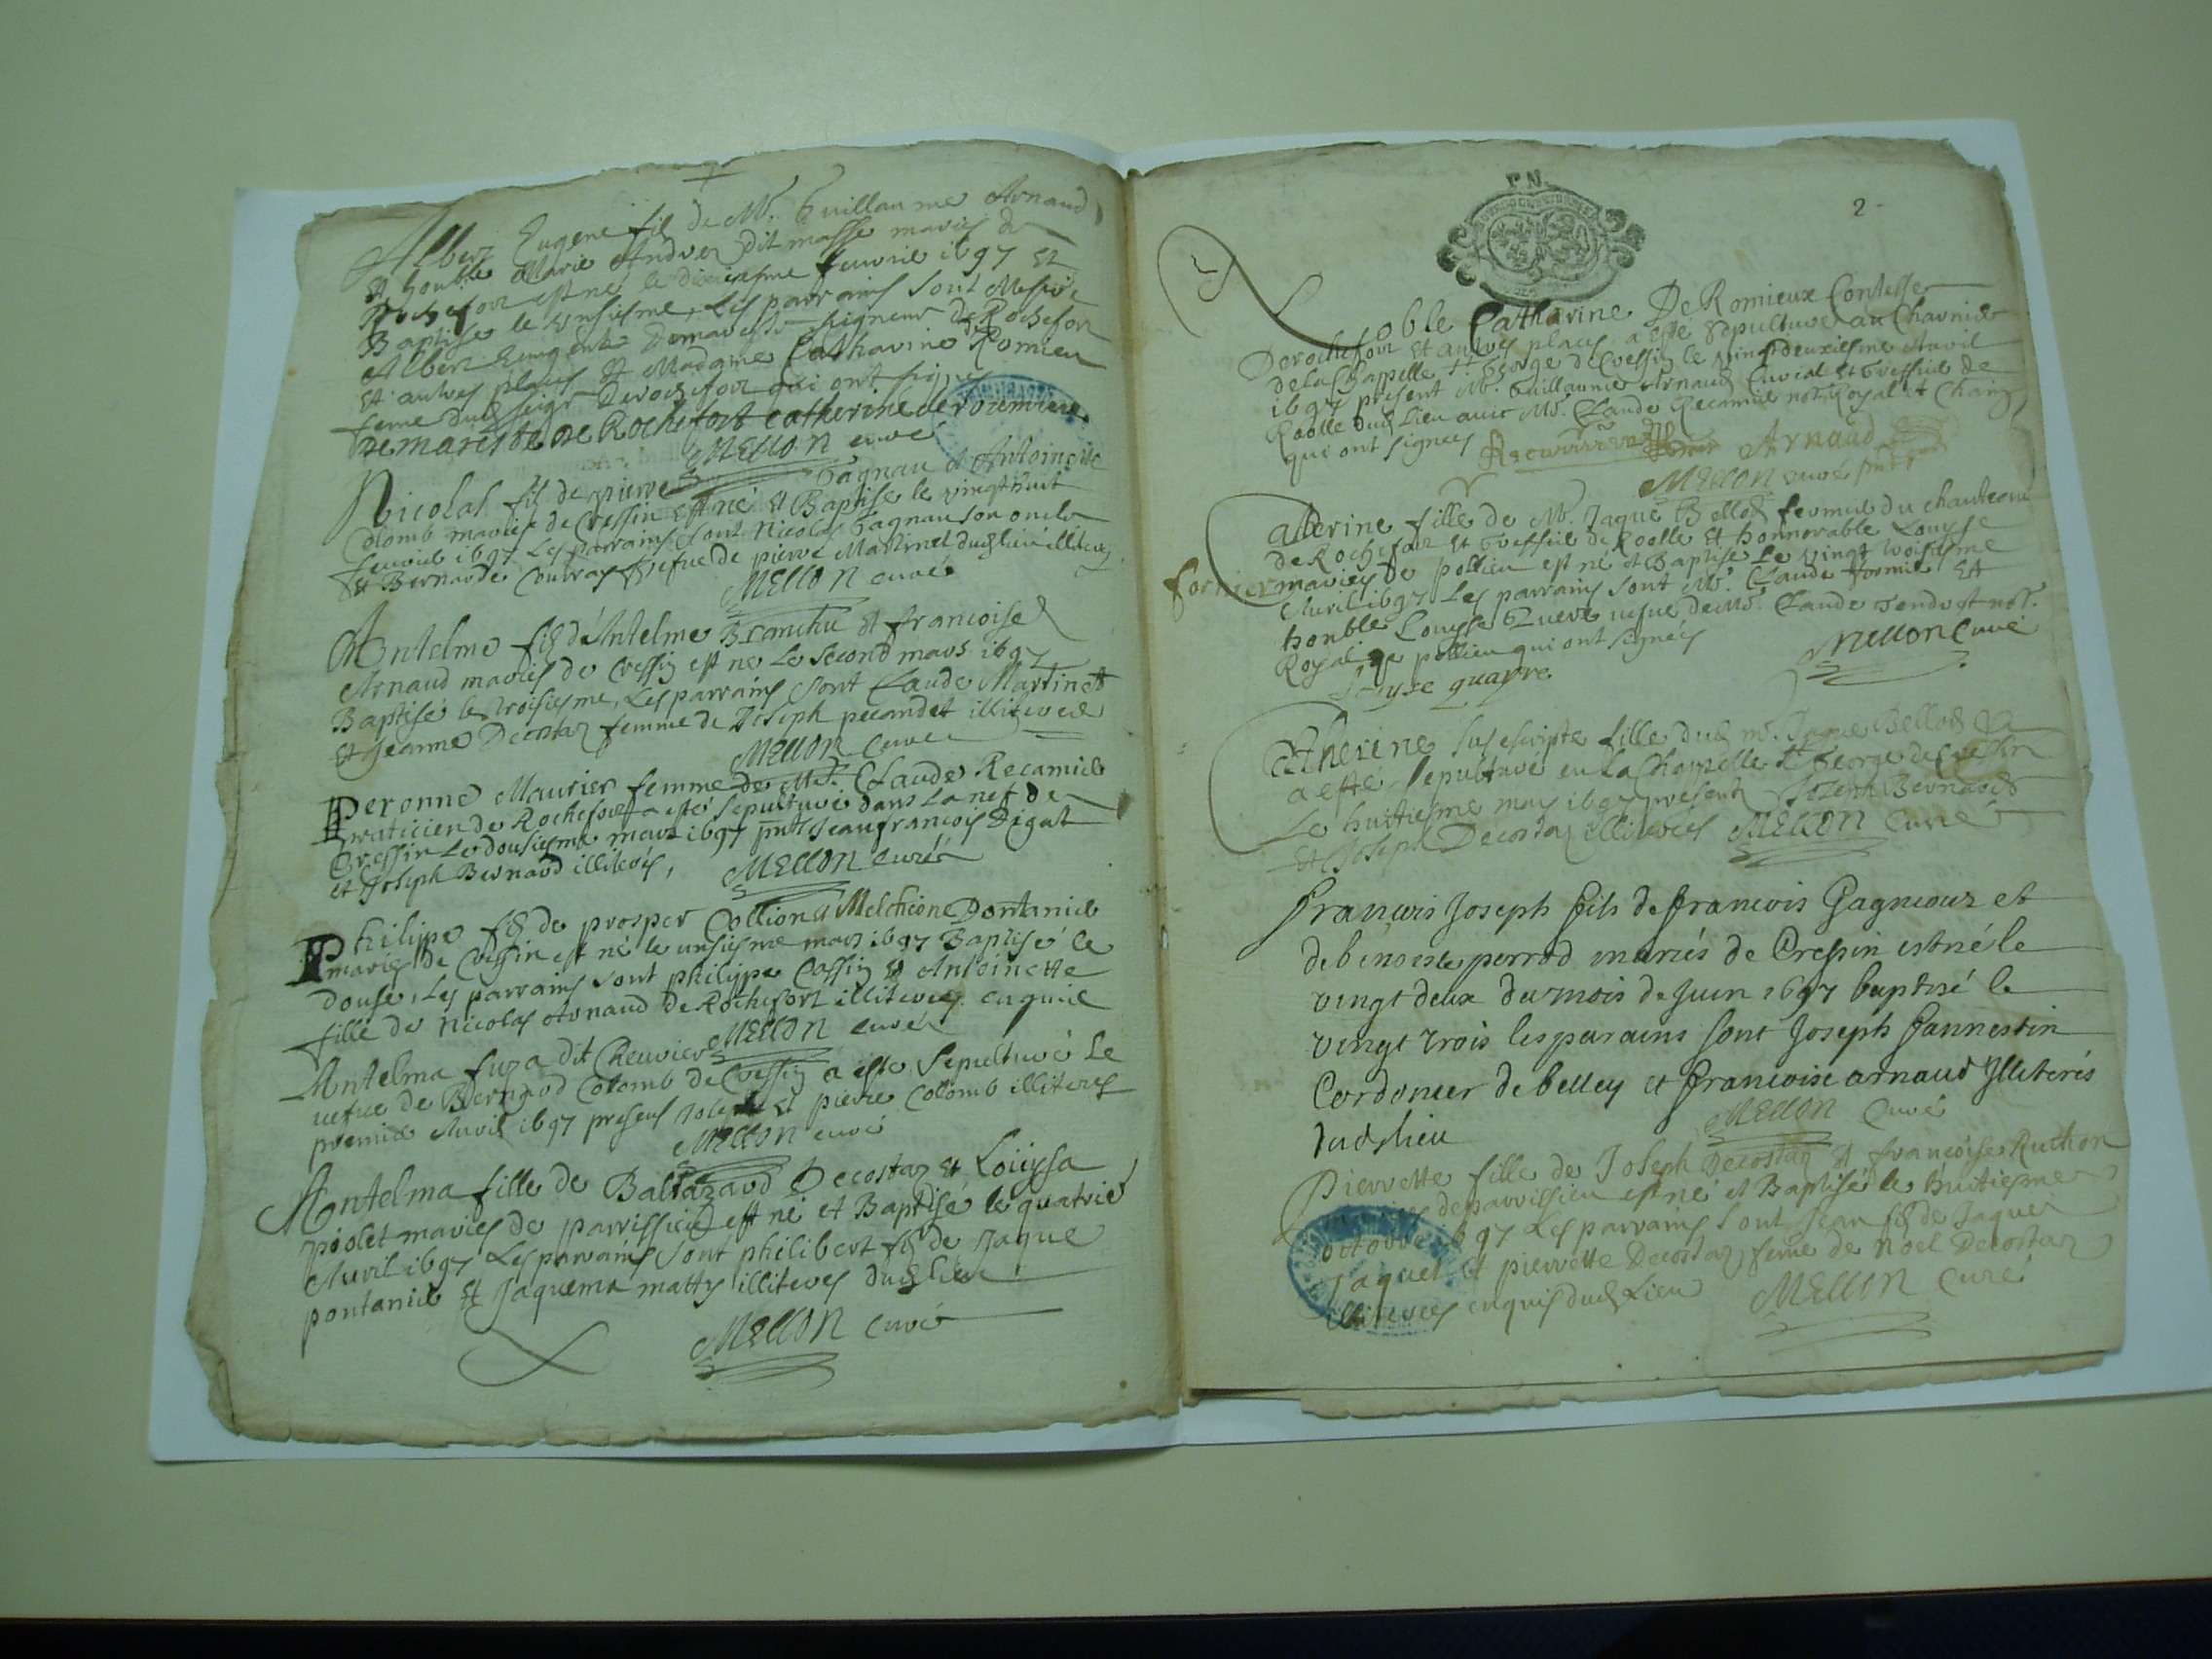 Albert Eugene fils de Mr. Guillaume Arnaud
et honble Marie Andrez dit masse mariés de
Rochefort est né le dixiesme feuvrie 1697 Et
Baptisé le unsiesme, Les parrains sont Messire
Albert Eugene Demareste seigneur de Rochefor
et autres places et Madame Catharine de Romieu
feme dud seigr Derochefor qui ont signes
Demareste de Rochefort Catherine de roumieux
MELLON curé
Nicolas fils de pierre Gagnau et Antoinette
Colomb mariés de Cressin est né et Baptisé le vingthuit
feuvrie 1697 Les parrains sont Nicolas Gagnau son oncle
et Bernarde Courras vefue de pierre Martinet dud lieu illiteres
MELLON curé
Antelme fils d'Antelme Branchu et francoise
Arnaud mariés de Cressin est né Le second mars 1697
Baptisé le troisiesme, Les parrains sont Claude Martinet
et Jeanne Decostaz femme de Joseph pecandet illiteres
MELLON Curé
Peronne Maurier femme de Mr. Claude Recamier
praticien de Rochefort a esté sepulturé dans La nef de
Cressin Le dousiesme mars 1697 pnts Jeanfrancois Digat
et Joseph Bernard illiterés,
MELLON curé
Philippe fils de prosper Collion et Melchione Pontanier
mariés de Cressin est né le unsiesme mars 1697 Baptisé le
douse, Les parrains sont philippe Cassin et Antoinette
fille de Nicolas Arnaud de Rochefort illiteres enquis
MELLON curé
Antelma fuza dit Cheuvier
vefue de Bernard Colomb de Cressin a esté sepulturé Le
premier Auril 1697 presens Joseph et pierre Colomb illiteres
MELLON curé
Antelma fille de Baltazard Decostaz et Louysa
piolet mariés de parrissieu est né et Baptisé le quatrie
Auril 1697 Les parrains sont philibert fils de Jaque
pontanier et Jaquema matty illiteres dud lieu
MELLON curé
2
Noble Catharine De Romieux Contesse
Derochefort et autres places a esté sepulturé au Charnier
de La Chappelle St George de Cressin le vingtdeuxiesme Auril
1697 présent Mr. Guillaume Arnaud Curial et Greffier de
Roolle dud Lieu avec Mr. Claude Recamier notr. Royal et Chatn
qui ont signes
Arnaud
MELLON curé
Catterine fille de Mr. Jaque Bellod fermier du chauteau
de Rochefor et Greffier de Roolle et honnorable Louyse
fornier mariés de pollieu est né et Baptisé Le vingt troisiesme
Auril 1697 Les parrains sont Mr. Claude fornier Et
honble Louyse Quarre vefue de Mr. Claude Gendost notr.
Royal de pollieu qui ont signés
MELLON Curé
Louyse quarre
Catherine susescripte fille dud mr. Jaque Bellod
a esté sepulturé en La Chappelle St George de Cressin
Le huitiesme may 1697 presents Joseph Bernard
et Joseph Decostaz illiterés MELLON Curé
François Joseph fils de francois Gagneour et
de benoiste perrod mariés de Cressin est né le
vingt deux du mois de Juin 1697 baptisé le
vingt trois les parains sont Joseph Jannestin
Cordonier de belley et francoise arnaud Illiterés
dud lieu
MELLON Curé
Pierrette fille de Joseph Decostaz et francoise Ruthon
mariés de parrissieu est né et Baptisé le huitiesme
octobre 1697 Les parrains sont Jean fils de Jaques
Jaquet et pierrette Decostaz feme de Noel Decostaz
illiteres enquis dud Lieu MELLON Curé